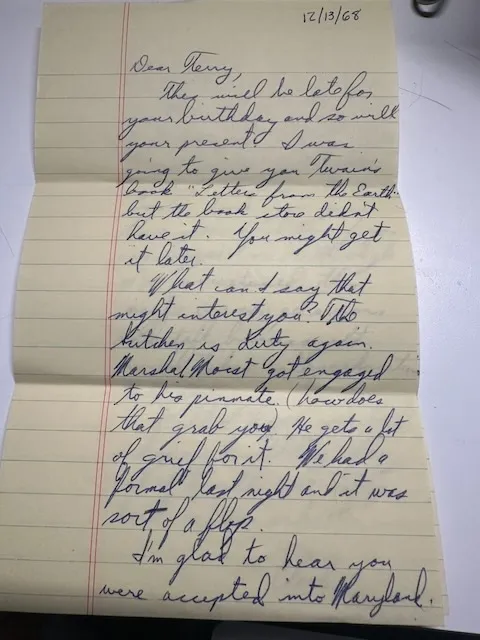 12/13/68
Dear Terry,
This will be late for
your birthday and so will
your present. I was
going to give you Twain's
book "Letters from the Earth"
but the book store didn't
have it. You might get
it later.
What can I say that
might interest you? The
kitchen is dirty again.
Marshal Moist got engaged
to his pinmate (how does
that grab you He gets a lot
of grief for it. We had a
formal last night and it was
sort of a flop.
I'm glad to hear you
were accepted into Maryland.